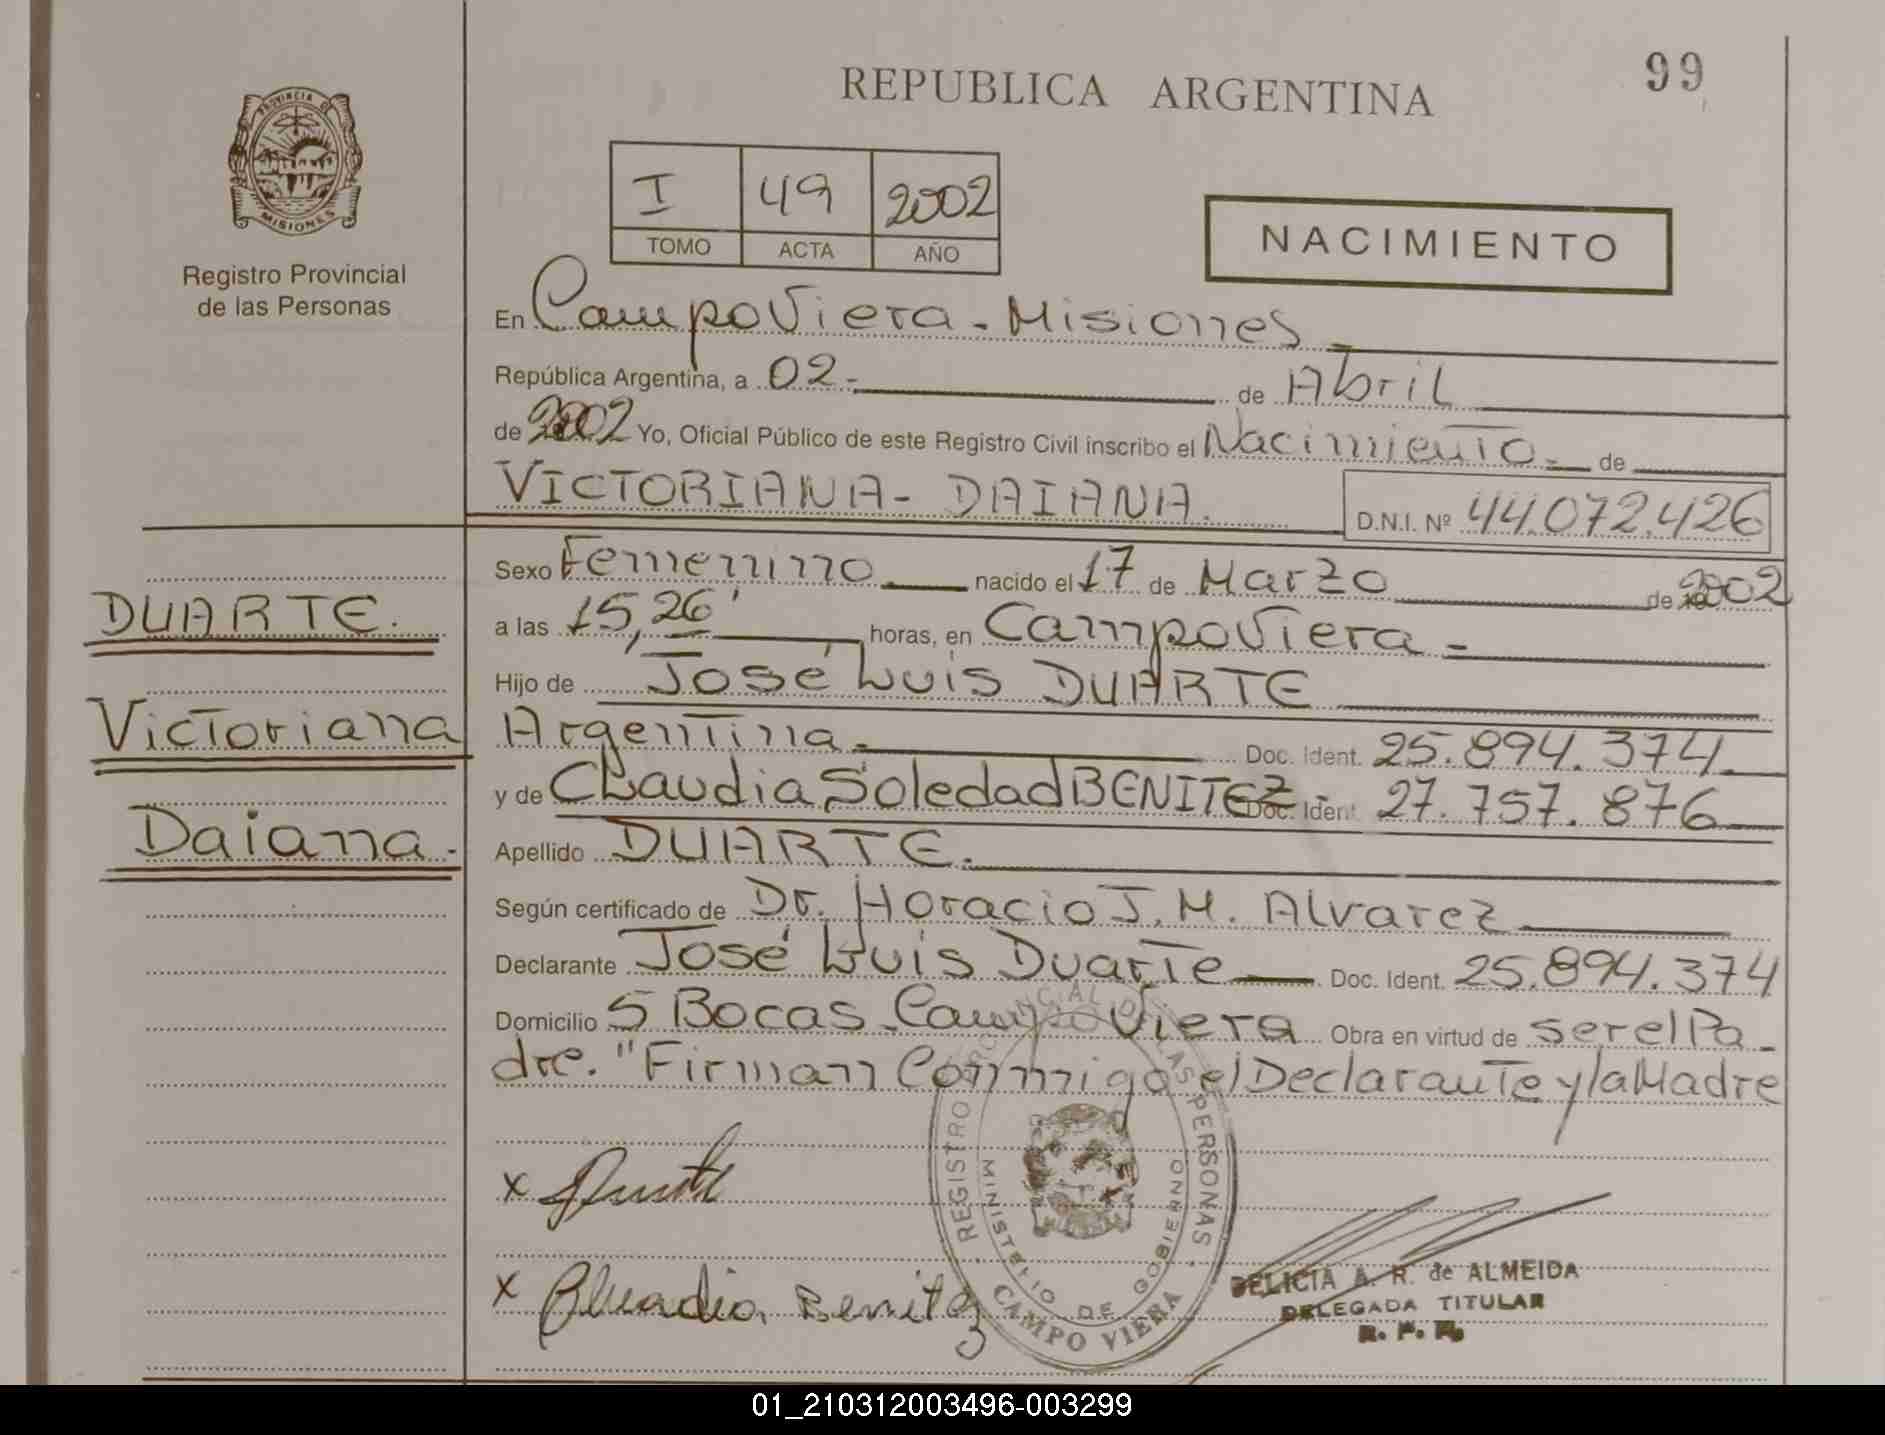 REPUBLICA ARGENTINA
99
PROVINCIA DE
MISIONES
Registro Provincial
de las Personas
I 49 2002
TOMO ACTA AÑO
NACIMIENTO
En Campo Viera - Misiones
República Argentina, a 02 - de Abril
de 2002 Yo, Oficial Público de este Registro Civil inscribo el Nacimiento - de
VICTORIANA - DAIANA.
D.N.I. Nº 44.072.426
Sexo Femenino nacido el 17 de Marzo de 2002
DUARTE.
a las 15,26' horas, en Campo Viera -
Hijo de José Luis DUARTE
Victoriana
Argentina - Doc. Ident. 25.894.374
y de Claudia Soledad BENITEZ - Doc. Ident. 27.757.876
Daiana.
Apellido DUARTE.
Según certificado de Dr. Horacio J. M. Alvarez
Declarante José Luis Duarte Doc. Ident. 25.894.374
Domicilio 5 Bocas - Campo Viera Obra en virtud de ser el Pa-
dre. "Firman Conmigo el Declarante y la Madre
x Duarte
x Claudia Benitez
REGISTRO PROVINCIAL DE LAS PERSONAS
MINISTERIO DE GOBIERNO
CAMPO VIERA
DELICIA A. R. de ALMEIDA
DELEGADA TITULAR
R. P. P.
01_210312003496-003299